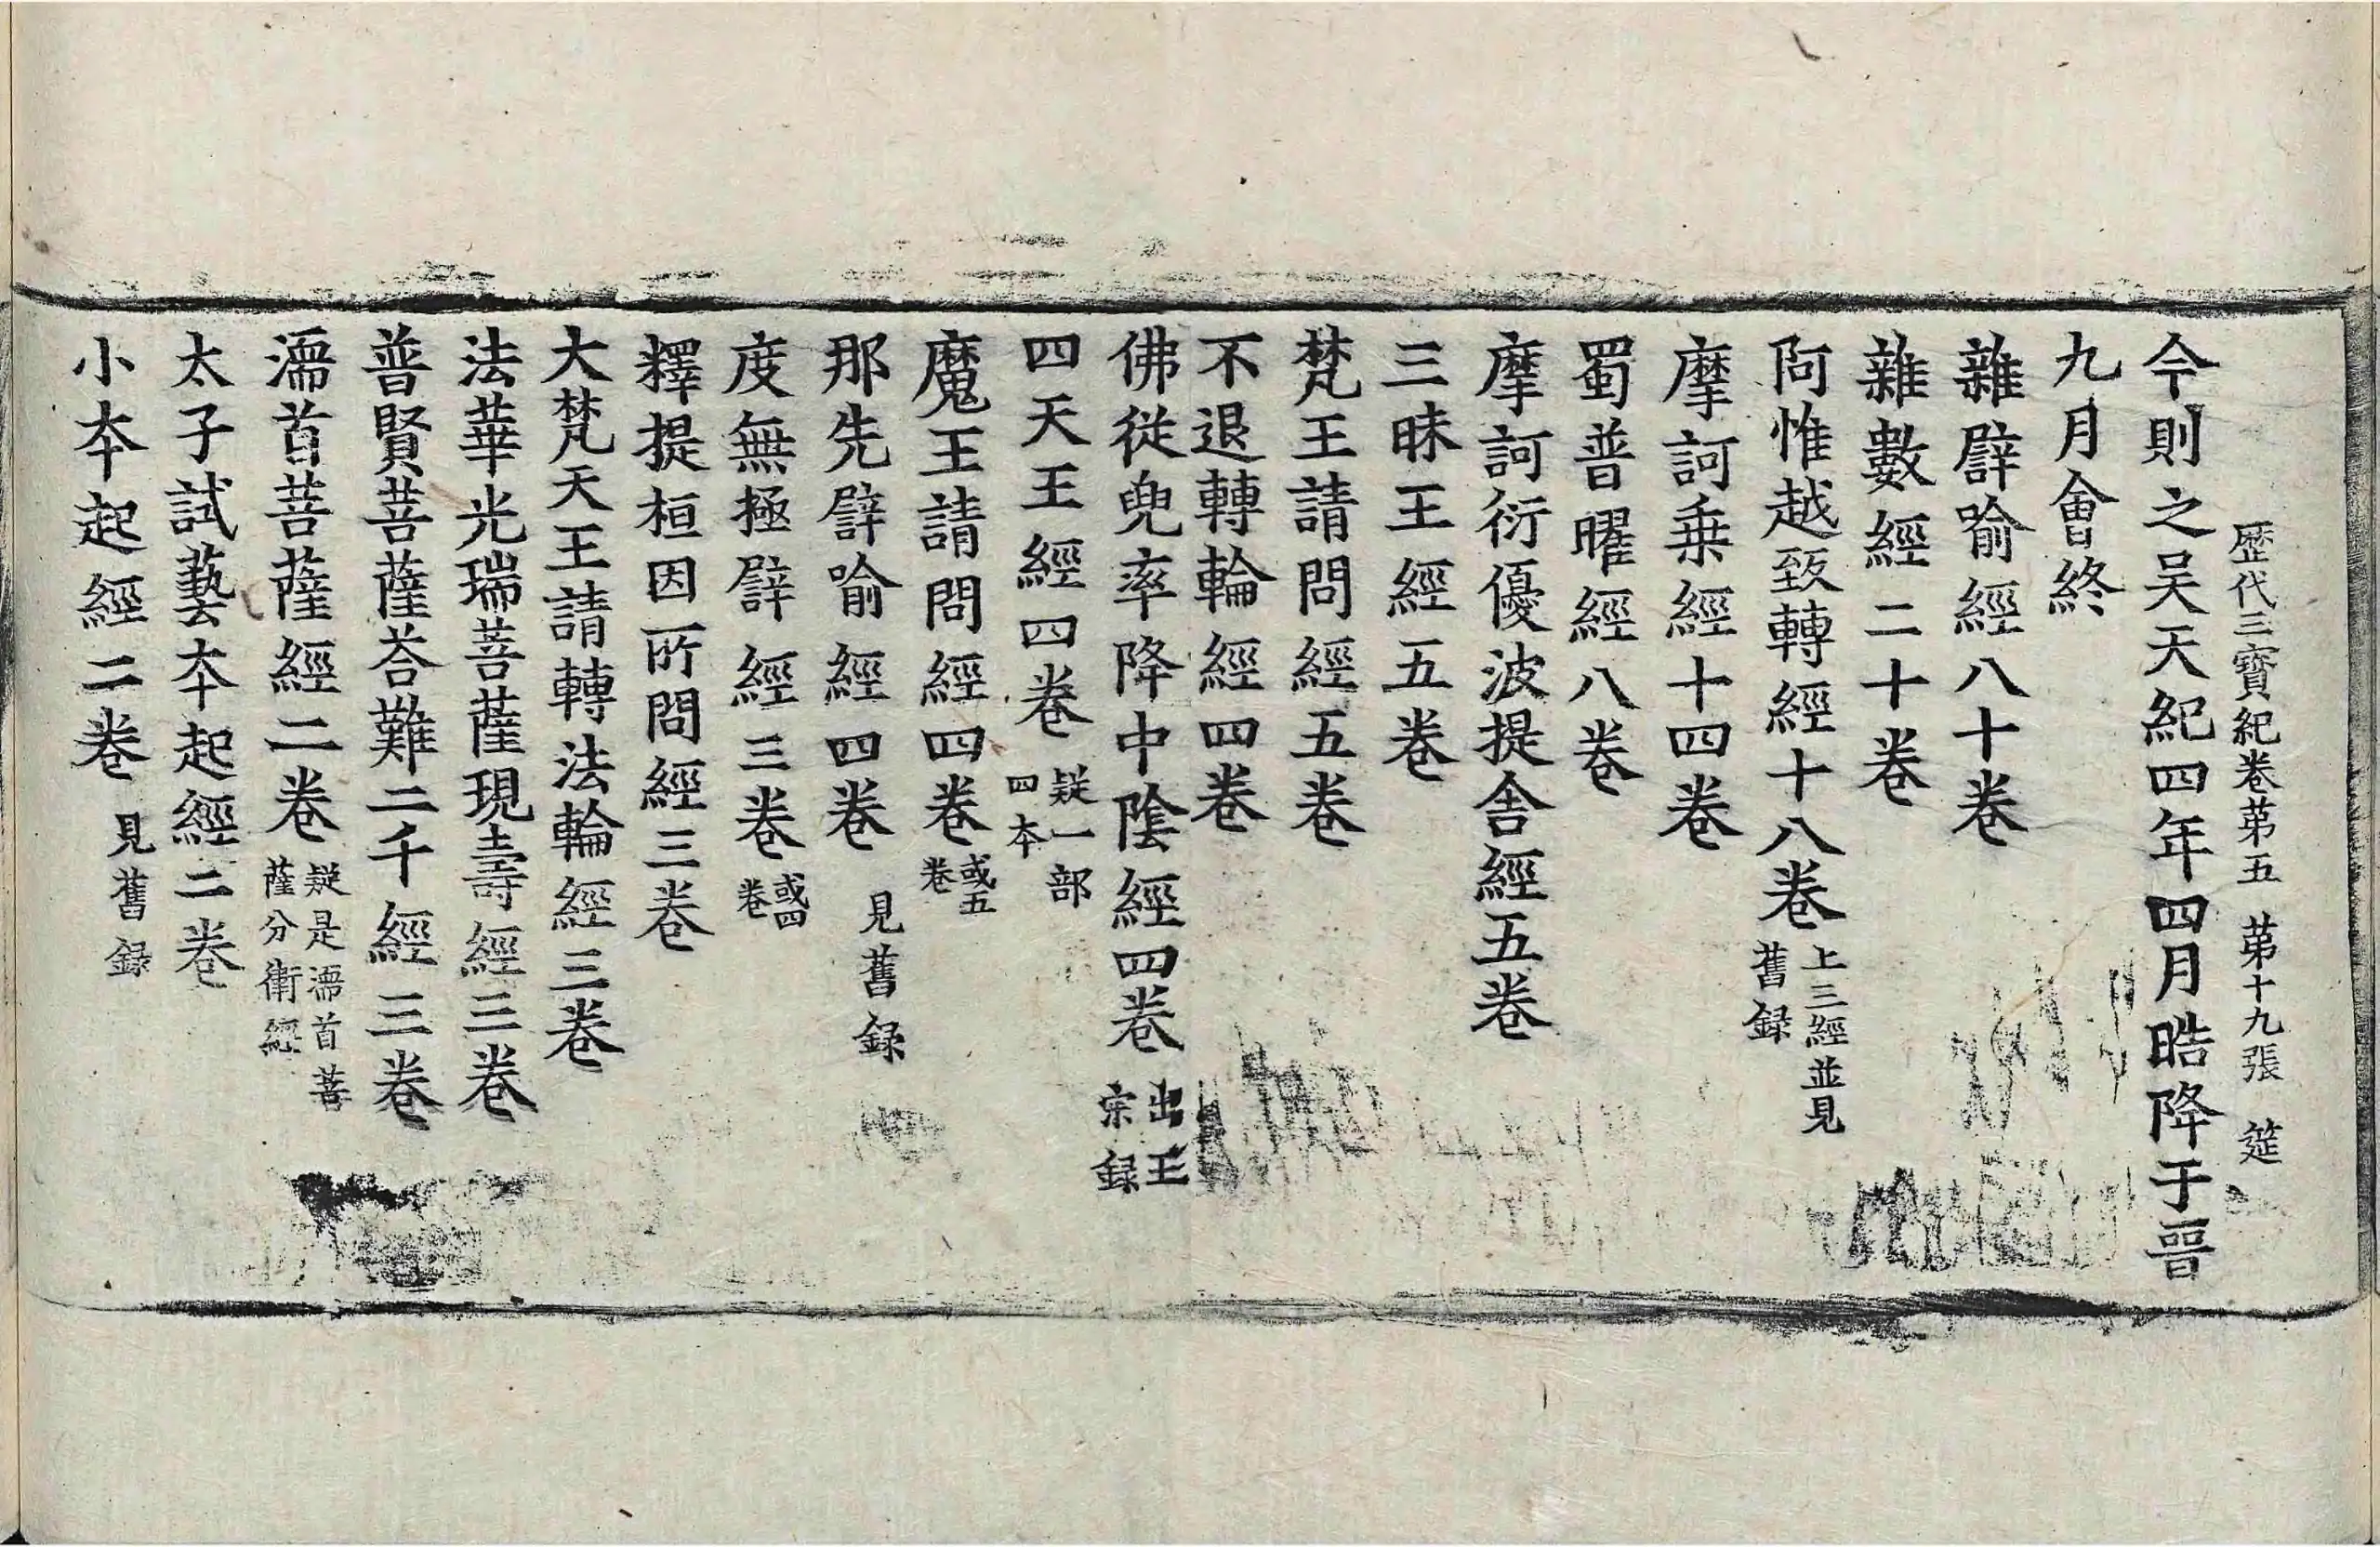 歷代三寶紀卷苐五　苐十九張　筵
今則之吴天紀四年四月晧降于晉
九月會終
雜譬喻經八十卷
雜數經二十卷
阿惟越致轉經十八卷 上三經並見舊録
摩訶乗經十四卷
蜀普曜經八卷
摩訶衍優波提舍經五卷
三昧王經五卷
梵王請問經五卷
不退轉輪經四卷
佛從兜率降中陰經四卷 出王宗録
四天王經四卷 疑一部四本
魔王請問經四卷 或五卷
那先譬喻經四卷 見舊録
度無極譬經三卷 或四卷
釋提桓因所問經三卷
大梵天王請轉法輪經三卷
法華光瑞菩薩現壽經三卷
普賢菩薩荅難二千經三卷
濡首菩薩經二卷 疑是濡首菩薩分衛經
太子試藝本起經二卷
小本起經二卷 見舊録